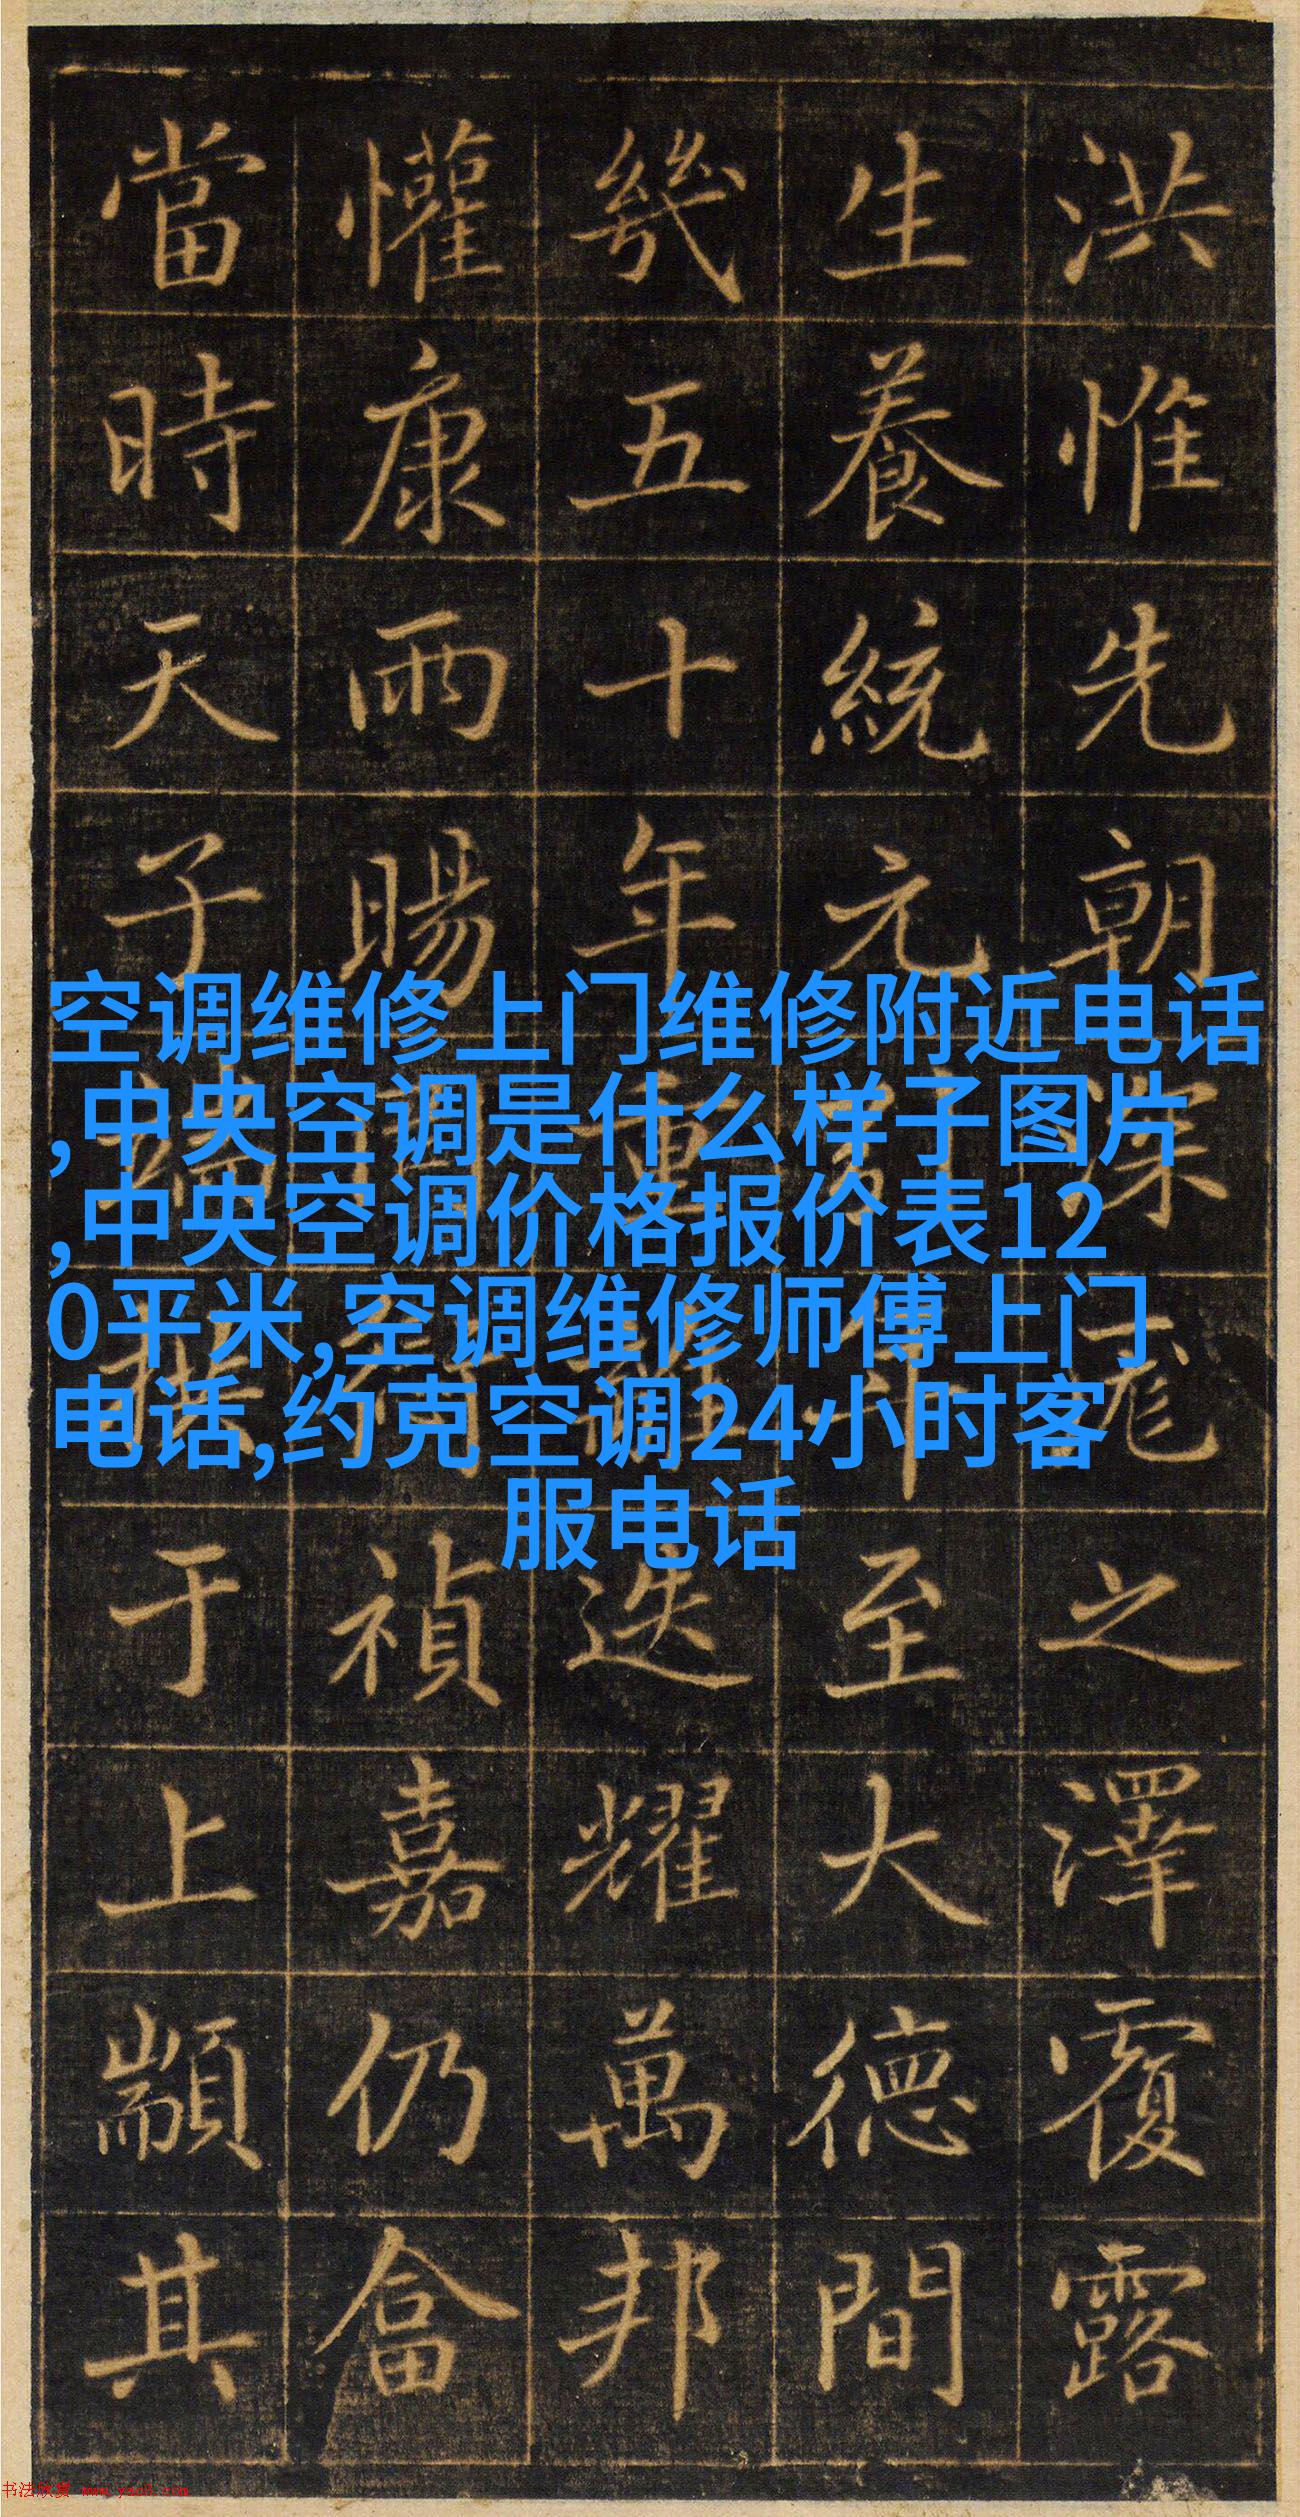 洪惟先朝深厖之澤覆露
生養統元年至大德間
幾五十年重迭耀萬邦
懽康雨暘禎嘉仍畣
當時天子端拱于上顒其
空调维修上门维修附近电话
,中央空调是什么样子图片
,中央空调价格报价表12
0平米,空调维修师傅上门
电话,约克空调24小时客
服电话
书法欣赏 www.yac8.com